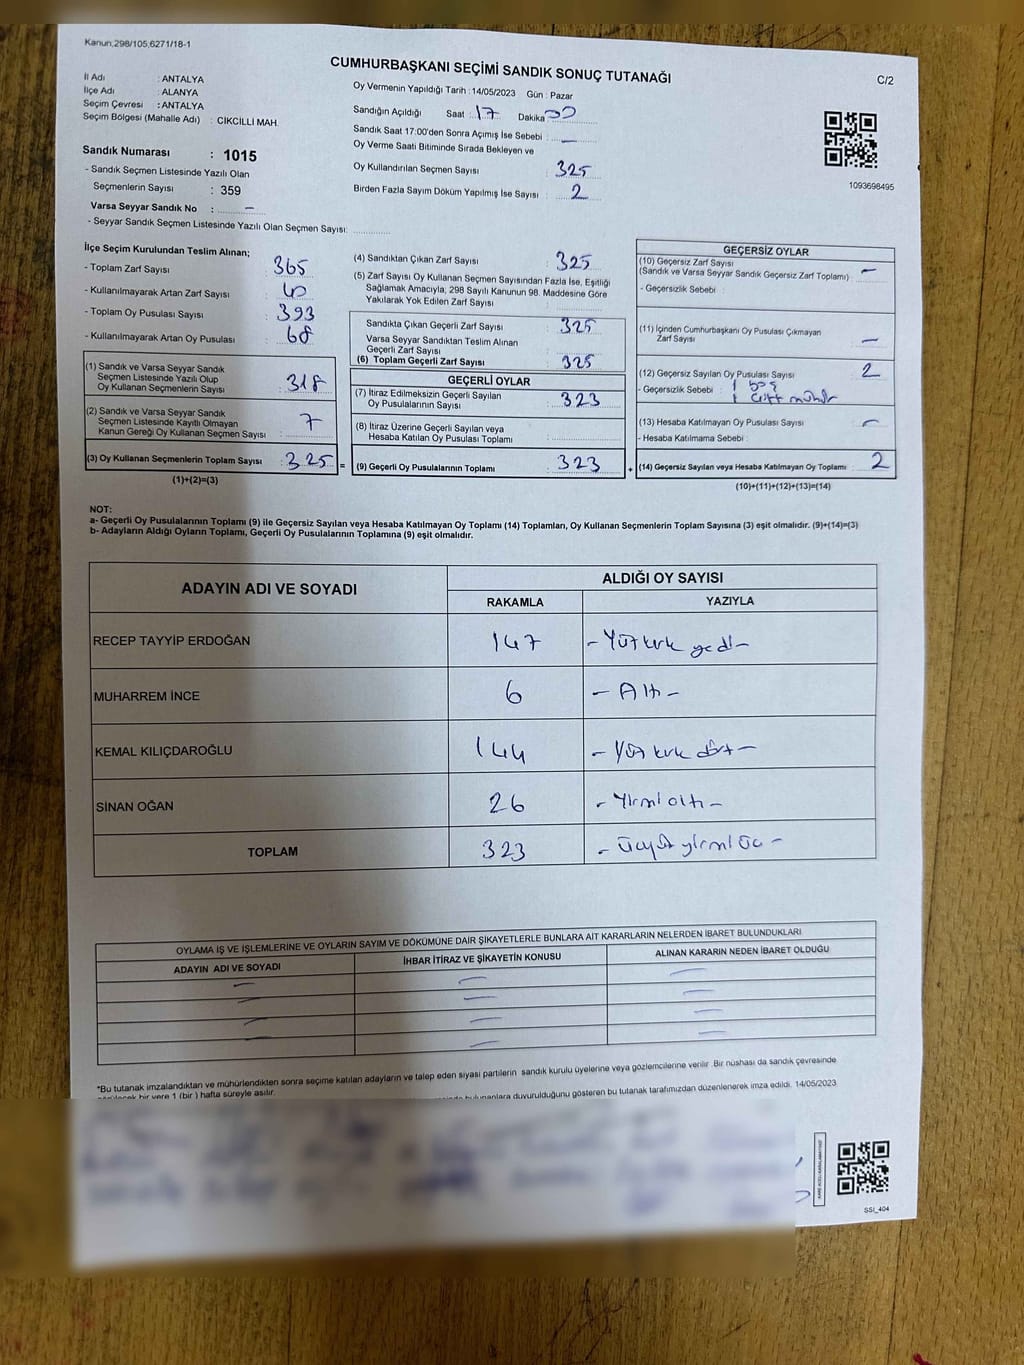 Kanun.298/105,6271/18-1
CUMHURBAŞKANI SEÇİMİ SANDIK SONUÇ TUTANAĞI
C/2
İl Adı : ANTALYA
İlçe Adı : ALANYA
Seçim Çevresi : ANTALYA
Seçim Bölgesi (Mahalle Adı) : CİKCİLLİ MAH.
Sandık Numarası : 1015
- Sandık Seçmen Listesinde Yazılı Olan
Seçmenlerin Sayısı : 359
Varsa Seyyar Sandık No : -
- Seyyar Sandık Seçmen Listesinde Yazılı Olan Seçmen Sayısı:
Oy Vermenin Yapıldığı Tarih : 14/05/2023 Gün : Pazar
Sandığın Açıldığı Saat : 17 Dakika : 00
Sandık Saat 17:00'den Sonra Açımış İse Sebebi : -
Oy Verme Saati Bitiminde Sırada Bekleyen ve
Oy Kullandırılan Seçmen Sayısı : 325
Birden Fazla Sayım Döküm Yapılmış İse Sayısı : 2
1093698495
İlçe Seçim Kurulundan Teslim Alınan;
- Toplam Zarf Sayısı : 365
- Kullanılmayarak Artan Zarf Sayısı : 40
- Toplam Oy Pusulası Sayısı : 393
- Kullanılmayarak Artan Oy Pusulası : 68
(1) Sandık ve Varsa Seyyar Sandık
Seçmen Listesinde Yazılı Olup
Oy Kullanan Seçmenlerin Sayısı : 318
(2) Sandık ve Varsa Seyyar Sandık
Seçmen Listesinde Kayıtlı Olmayan
Kanun Gereği Oy Kullanan Seçmen Sayısı : 7
(3) Oy Kullanan Seçmenlerin Toplam Sayısı : 325 =
(1)+(2)=(3)
(4) Sandıktan Çıkan Zarf Sayısı : 325
(5) Zarf Sayısı Oy Kullanan Seçmen Sayısından Fazla İse, Eşitliği
Sağlamak Amacıyla; 298 Sayılı Kanunun 98. Maddesine Göre
Yakılarak Yok Edilen Zarf Sayısı :
Sandıkta Çıkan Geçerli Zarf Sayısı : 325
Varsa Seyyar Sandıktan Teslim Alınan
Geçerli Zarf Sayısı :
(6) Toplam Geçerli Zarf Sayısı : 325
GEÇERLİ OYLAR
(7) İtiraz Edilmeksizin Geçerli Sayılan
Oy Pusulalarının Sayısı : 323
(8) İtiraz Üzerine Geçerli Sayılan veya
Hesaba Katılan Oy Pusulası Toplamı :
(9) Geçerli Oy Pusulalarının Toplamı : 323 +
GEÇERSİZ OYLAR
(10) Geçersiz Zarf Sayısı
(Sandık ve Varsa Seyyar Sandık Geçersiz Zarf Toplamı) : -
- Geçersizlik Sebebi :
(11) İçinden Cumhurbaşkanı Oy Pusulası Çıkmayan
Zarf Sayısı : -
(12) Geçersiz Sayılan Oy Pusulası Sayısı : 2
- Geçersizlik Sebebi : 1 boş
1 çift mühür
(13) Hesaba Katılmayan Oy Pusulası Sayısı : -
- Hesaba Katılmama Sebebi :
(14) Geçersiz Sayılan veya Hesaba Katılmayan Oy Toplamı : 2
(10)+(11)+(12)+(13)=(14)
NOT:
a- Geçerli Oy Pusulalarının Toplamı (9) ile Geçersiz Sayılan veya Hesaba Katılmayan Oy Toplamı (14) Toplamları, Oy Kullanan Seçmenlerin Toplam Sayısına (3) eşit olmalıdır. (9)+(14)=(3)
b- Adayların Aldığı Oyların Toplamı, Geçerli Oy Pusulalarının Toplamına (9) eşit olmalıdır.
ADAYIN ADI VE SOYADI
ALDIĞI OY SAYISI
RAKAMLA YAZIYLA
RECEP TAYYİP ERDOĞAN 147 - Yüz kırk yedi -
MUHARREM İNCE 6 - Altı -
KEMAL KILIÇDAROĞLU 144 - Yüz kırk dört -
SİNAN OĞAN 26 - Yirmi altı -
TOPLAM 323 - Üçyüz yirmi üç -
OYLAMA İŞ VE İŞLEMLERİNE VE OYLARIN SAYIM VE DÖKÜMÜNE DAİR ŞİKAYETLERLE BUNLARA AİT KARARLARIN NELERDEN İBARET BULUNDUKLARI
ADAYIN ADI VE SOYADI İHBAR İTİRAZ VE ŞİKAYETİN KONUSU ALINAN KARARIN NEDEN İBARET OLDUĞU
*Bu tutanak imzalandıktan ve mühürlendikten sonra seçime katılan adayların ve talep eden siyasi partilerin sandık kurulu üyelerine veya gözlemcilerine verilir. Bir nüshası da sandık çevresinde
görülecek bir yere 1 (bir) hafta süreyle asılır. bulunanlara duyurulduğunu gösteren bu tutanak tarafımızdan düzenlenerek imza edildi. 14/05/2023
SSI_404